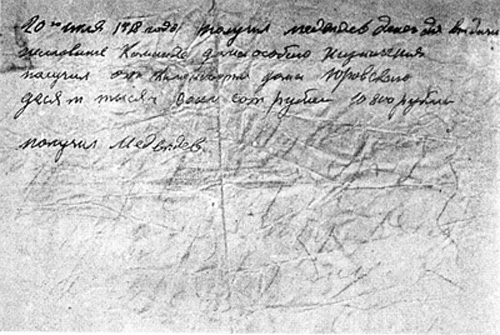 20го июля 1918 года получил медведев денег для выдачи
Команде дома особого назначения
получил от дома Юровского
десят тысяч сот рублей 10800 рубли
получил Медведев